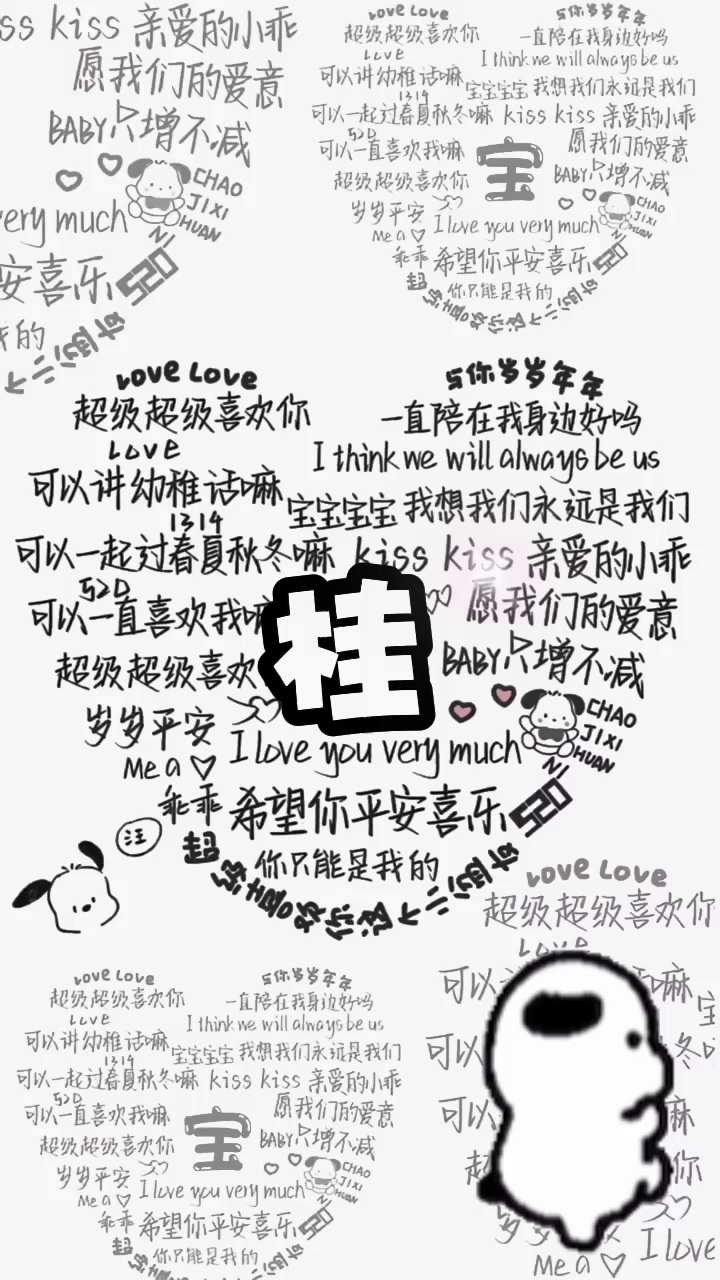 ss kiss 亲爱的小乖
愿我们的爱意
BABY只增不减
CHAO
JI XI
HUAN
NI
very much
安喜乐 520
的
Love Love
超级超级喜欢你
Love
可以讲幼稚话嘛
1314
可以一起过春夏秋冬嘛
520
可以一直喜欢我嘛
超级超级喜欢你
岁岁平安
Me a
乖乖
与你岁岁年年
一直陪在我身边好吗
I think we will always be us
宝宝宝宝 我想我们永远是我们
kiss kiss 亲爱的小乖
愿我们的爱意
宝
BABY只增不减
CHAO
JI XI
HUAN
I love you very much
希望你平安喜乐 520
你只能是我的
Love Love
与你岁岁年年
超级超级喜欢你
一直陪在我身边好吗
Love
I think we will always be us
可以讲幼稚话嘛
宝宝宝宝 我想我们永远是我们
1314
可以一起过春夏秋冬嘛 kiss kiss 亲爱的小乖
520
可以一直喜欢我嘛
愿我们的爱意
桂
超级超级喜欢
BABY只增不减
岁岁平安
CHAO
JI XI
HUAN
NI
Me a
I love you very much
乖乖 希望你平安喜乐 520
你只能是我的
汪
Love Love
超级超级喜欢你
Love
可以 嘛
可以
可以 嘛
超 你
I love
Me a
Love Love
与你岁岁年年
超级超级喜欢你
一直陪在我身边好吗
Love
I think we will always be us
可以讲幼稚话嘛
宝宝宝宝 我想我们永远是我们
1314
可以一起过春夏秋冬嘛 kiss kiss 亲爱的小乖
520
可以一直喜欢我嘛
愿我们的爱意
宝
超级超级喜欢你
BABY只增不减
岁岁平安
CHAO
JI XI
HUAN
Me a
I love you very much
乖乖 希望你平安喜乐 520
你只能是我的